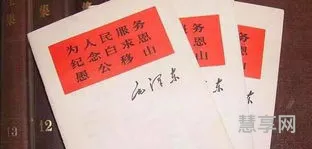 为人民服务
纪念白求恩
愚公移山
毛泽东
13
12
慧享网